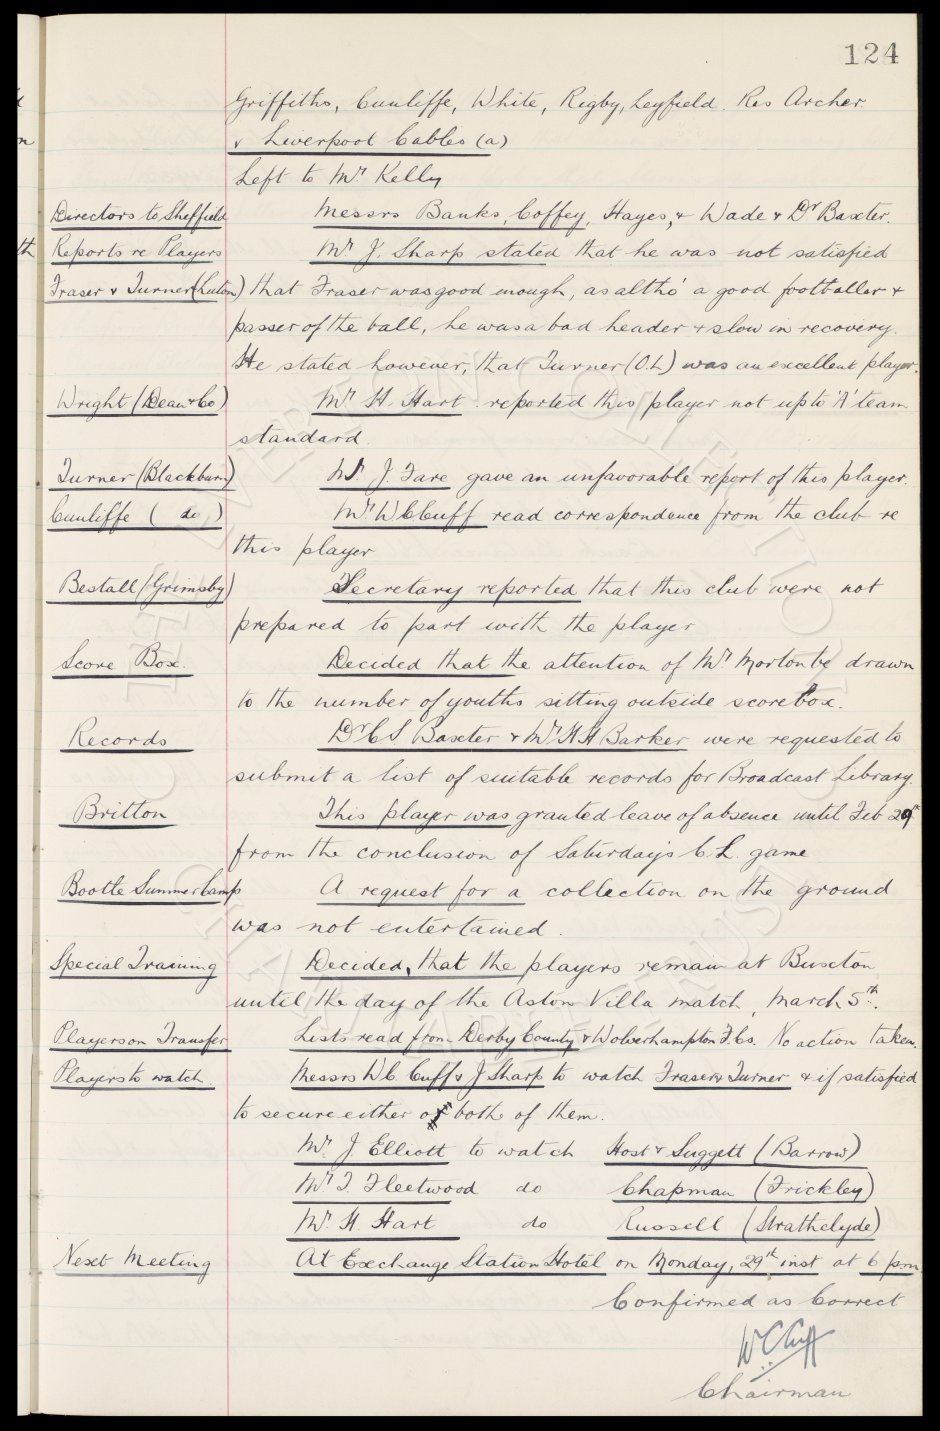 124
Griffiths, Cunliffe, White, Rigby, Leyfield. Res Archer
v Liverpool Cables (a)
Left to Mr Kelly
Directors to Sheffield Messrs Banks, Coffey, Hayes, & Wade & Dr Baxter.
Reports re Players Mr J. Sharp stated that he was not satisfied
Fraser & Turner (Luton) that Fraser was good enough, as altho' a good footballer &
passer of the ball, he was a bad header & slow in recovery.
He stated however, that Turner (O.L) was an excellent player.
Wright (Dean & Co) Mr H. Hart reported this player not up to 'A' team
standard.
Turner (Blackburn) Mr J. Fare gave an unfavorable report of this player.
Cunliffe ( do ) Mr W C Cuff read correspondence from the club re
this player
Bestall (Grimsby) Secretary reported that this club were not
prepared to part with the player
Score Box. Decided that the attention of Mr Morton be drawn
to the number of youths sitting outside score box.
Records Dr C S Baxter & Mr H H Barker were requested to
submit a list of suitable records for Broadcast Library.
Britton This player was granted leave of absence until Feb 29th
from the conclusion of Saturday's C.L. game
Bootle Summer Camp A request for a collection on the ground
was not entertained.
Special Training Decided, that the players remain at Buxton
until the day of the Aston Villa match, March 5th.
Players on Transfer Lists read from Derby County & Wolverhampton F.Cs. No action taken.
Players to watch Messrs W C Cuff & J Sharp to watch Fraser & Turner & if satisfied
to secure either or both of them.
Mr J. Elliott to watch Host & Suggett (Barrow)
Mr T. Fleetwood do Chapman (Frickley)
Mr H. Hart do Russell (Strathclyde)
Next Meeting At Exchange Station Hotel on Monday, 29th inst at 6 pm.
Confirmed as Correct
W C Cuff
Chairman